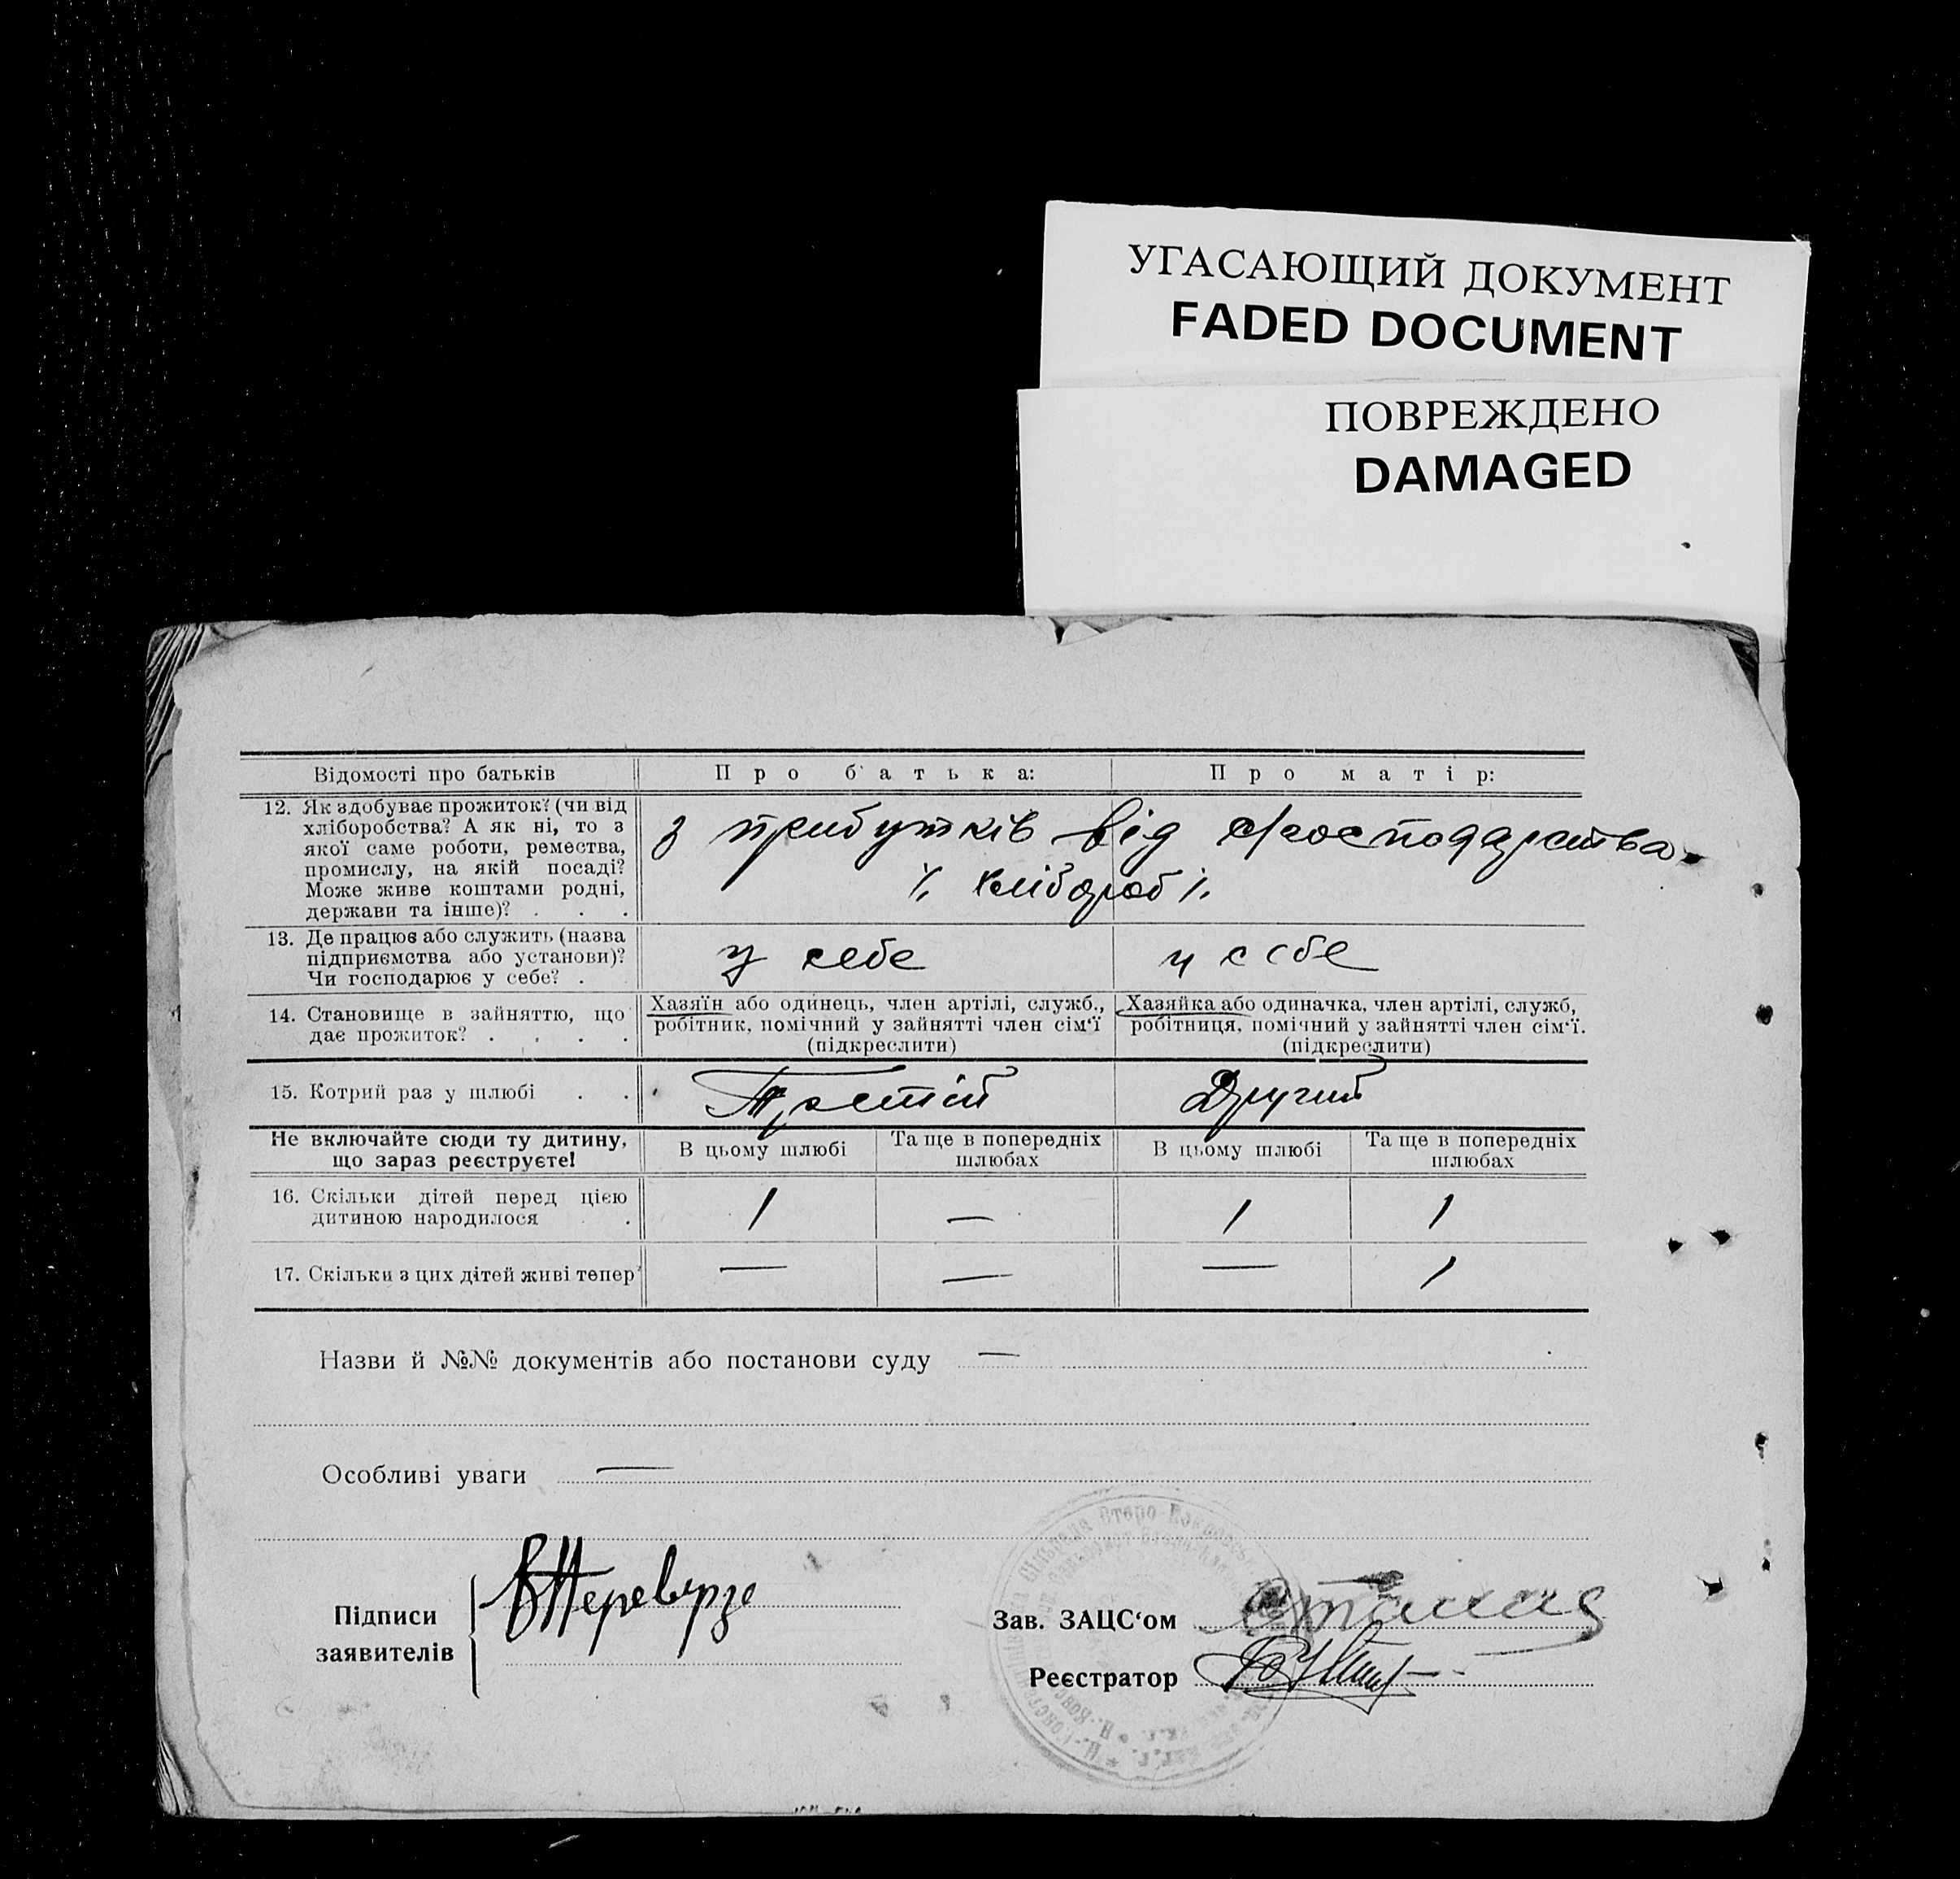 УГАСАЮЩИЙ ДОКУМЕНТ
FADED DOCUMENT
ПОВРЕЖДЕНО
DAMAGED
Відомості про батьків
Про батька:
Про матір:
12. Як здобуває прожиток? (чи від
хліборобства? А як ні, то з
якої саме роботи, ремества,
промислу, на якій посаді?
Може живе коштами родні,
держави та інше)? . . .
з прибутків від с/господарства
⁒ хлібороб ⁒
13. Де працює або служить (назва
підприємства або установи)?
Чи господарює у себе? .
у себе
у себе
14. Становище в зайняттю, що
дає прожиток? . . . .
Хазяїн або одинець, член артілі, служб.,
робітник, помічний у зайнятті член сім'ї
(підкреслити)
Хазяйка або одиначка, член артілі, служб,
робітниця, помічний у зайнятті член сім'ї.
(підкреслити)
15. Котрий раз у шлюбі . .
Третій
Другий
Не включайте сюди ту дитину,
що зараз реєструєте!
В цьому шлюбі
Та ще в попередніх
шлюбах
В цьому шлюбі
Та ще в попередніх
шлюбах
16. Скільки дітей перед цією
дитиною народилося .
1
—
1
1
17. Скільки з цих дітей живі тепер?
—
—
—
1
Назви й №№ документів або постанови суду —
Особливі уваги —
Підписи
заявителів
Зав. ЗАЦС'ом
Реєстратор